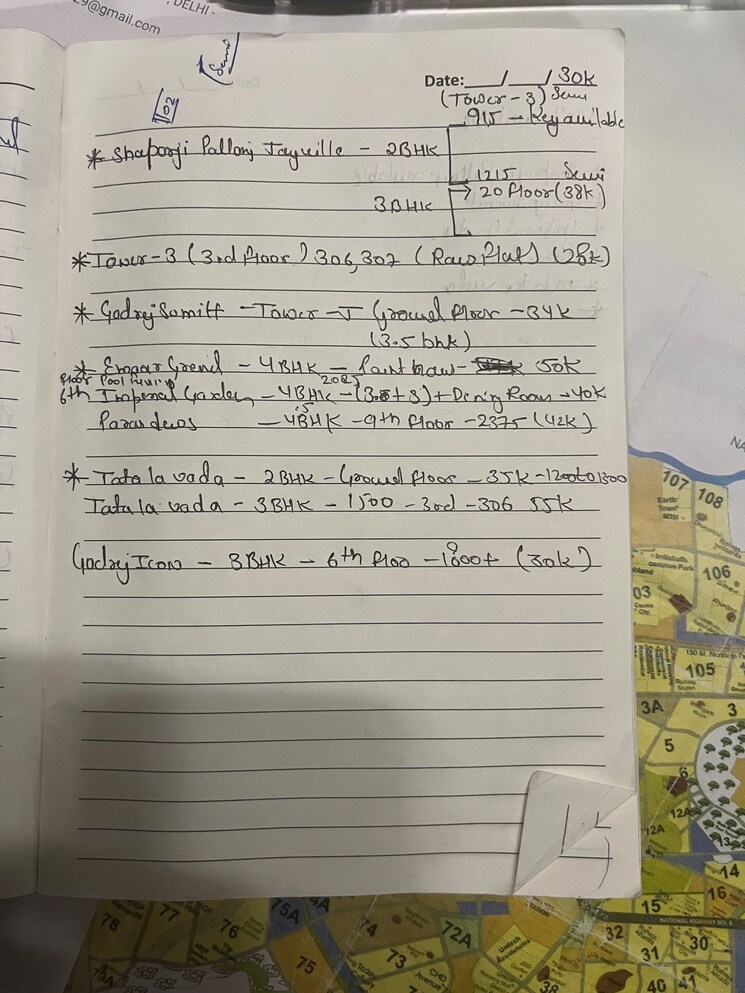 , DELHI -
9@gmail.com
Semi
102
Date:___/___/ 30k
(Tower - 3) Semi
915 - Key available
* Shapoorji Pallonj Jayville - 2BHK
1215 Semi
→ 20 floor (38k)
3BHK
* Tower-3 (3rd floor) 306,307 (Raw Flat) (28k)
* Godrej Sumitt - Tower - J Ground floor - 34k
(3.5 bhk)
* Emaar Greend - 4BHK - 50k
floor Pool
202
6th Imperial Garden - 4BHK - (3.5+3) + Dining Room - 40k
- 4BHK - 9th floor - 2375 (42k)
* Tata la vada - 2BHK - Ground floor - 35k - 1200 to 1300
Tata la vada - 3BHK - 1500 - 3rd - 306 55k
Godrej Icon - 3BHK - 6th floo - 1800+ (30k)
107
108
Earth Town
106
03
150 M.
105
3A
3
5
6
12A
12A
13
14
16
15
NATIONAL HIGHWAY NO. 8
32
30
31
40
41
38
78
77
76
75A
4A
74
73
72A
75
CHD Avenue
Unitech